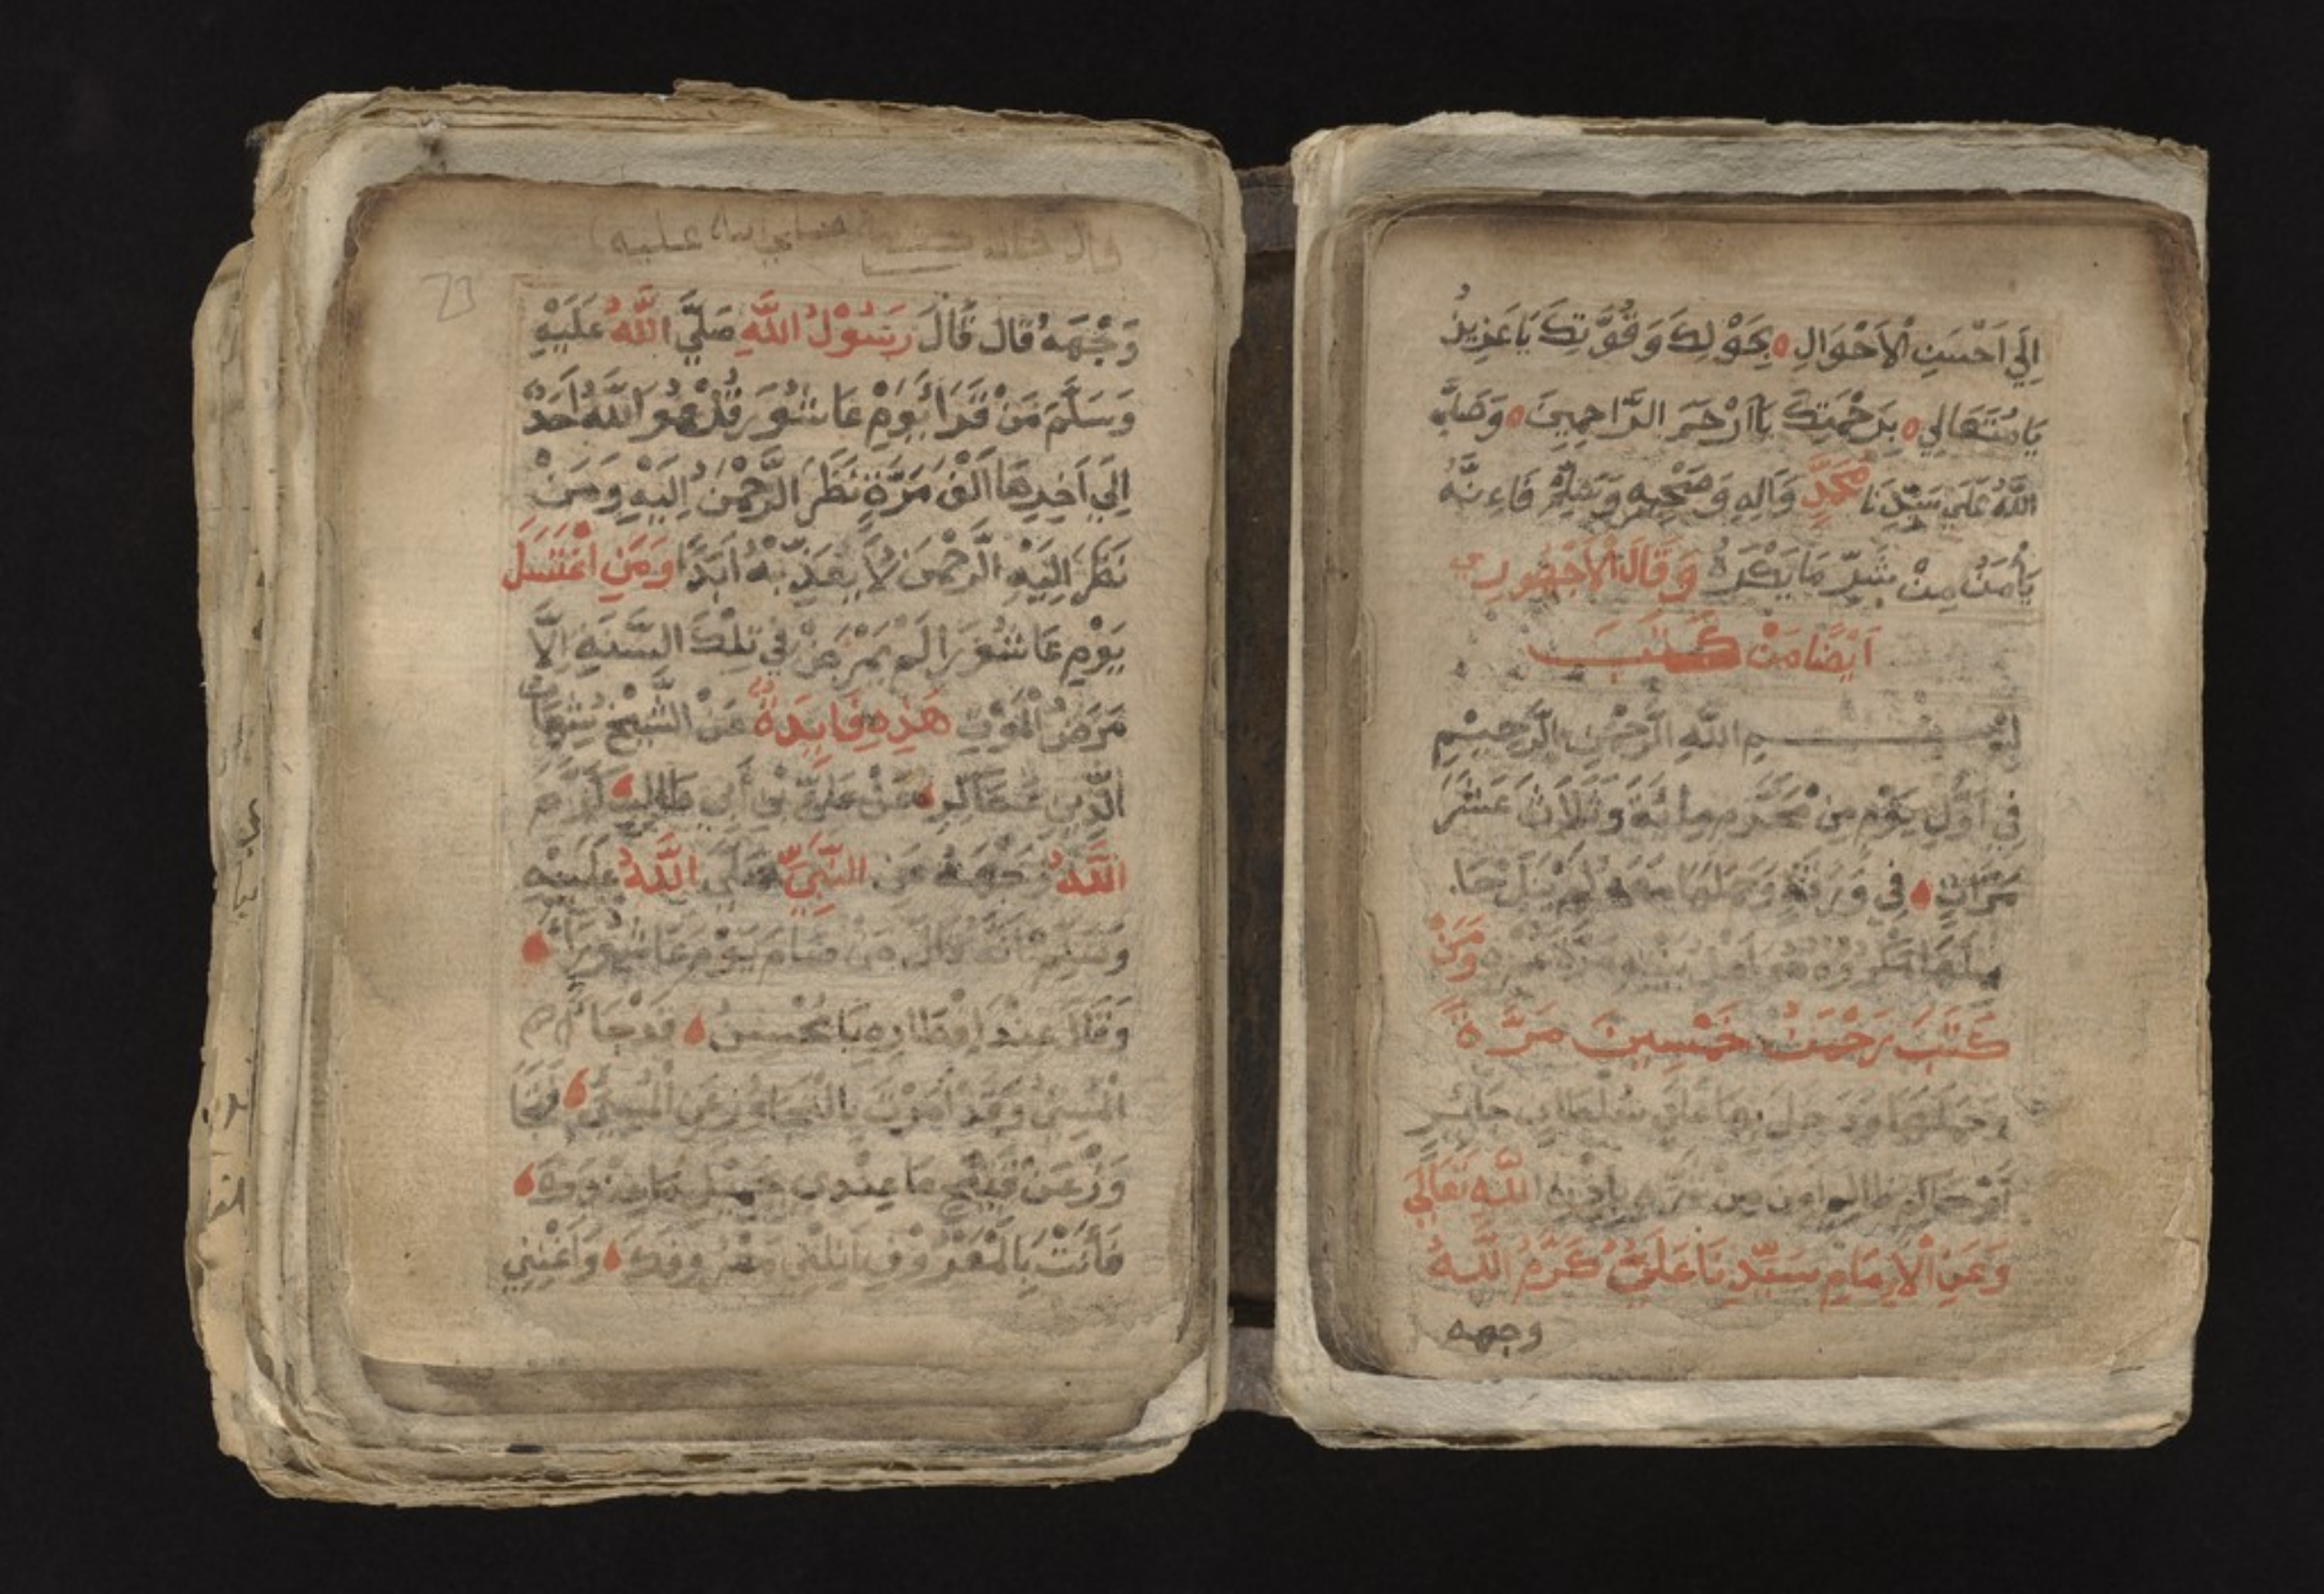 اِلَي اَحْسَنِ الْاَحْوَالِ بِحَوْلِكَ وَقُوَّتِكَ يَا عَزِيزُ
يَا مُتَعَالِي بِرَحْمَتِكَ يَا اَرْحَمَ الرَّاحِمِينَ وَصَلَّي
اللَّهُ عَلَي سَيِّدِنَا مُحَمَّدٍ وَاٰلِهِ وَصَحْبِهِ وَسَلِّمْ فَاءِنَّهُ
يَأْمَنُ مِنْ شَرِّ مَا يَكْرَهُ وَقَالَ الْاَجْهُورِي
اَيْضًا مَنْ كَتَبَ
بِسْمِ اللَّهِ الرَّحْمٰنِ الرَّحِيْمِ
فِي اَوَّلِ يَوْمٍ مِنْ مُحَرَّمٍ مِائَةً وَثَلَاثَ عَشَرَ
مَرَّاتٍ فِي وَرَقَةٍ وَحَمَلَهَا مَعَهُ لَمْ يَنَلْ حَا
مِلَهَا مَكْرُوهٌ هُوَ وَاَهْلُ بَيْتِهِ مُدَّةَ عُمْرِهِ وَمَنْ
كَتَبَ رَحْمٰنُ خَمْسِينَ مَرَّةً
وَحَمَلَهَا وَدَخَلَ بِهَا عَلَي سُلْطَانٍ جَائِرٍ
اَوْ حَاكِمٍ ظَالِمٍ اَمِنَ مِنْ شَرِّهِ بِاِذْنِ اللَّهِ تَعَالَي
وَعَنِ الْاِمَامِ سَيِّدِنَا عَلِيٍّ كَرَّمَ اللَّهُ
وجهه
قال صلي الله عليه
73
وَجْهَهُ قَالَ قَالَ رَسُوْلُ اللَّهِ صَلَّي اللَّهُ عَلَيْهِ
وَسَلَّمَ مَنْ قَرَا يَوْمَ عَاشُورَ قُلْ هُوَ اللَّهُ اَحَدٌ
اِلَي اَخِرِهَا اَلْفَ مَرَّةٍ نَظَرَ الرَّحْمٰنُ اِلَيْهِ وَمَنْ
نَظَرَ اِلَيْهِ الرَّحْمٰنُ لَا يُعَذِّبُهُ اَبَدًا وَمَنِ اغْتَسَلَ
يَوْمَ عَاشُوْرَا لَمْ يَمْرَضْ فِي تِلْكَ السَّنَةِ اِلَّا
مَرَضَ الْمَوْتِ هَذِهِ فَايِدَةٌ عَنْ الشَّيْخِ شِهَابِ
الدِّينِ عَنْ عَلِيِّ بْنِ أَبِي طَالِبٍ كَرَّمَ
اللَّهُ وَجْهَهُ عَنِ النَّبِيِّ صَلَّي اللَّهُ عَلَيْهِ
وَسَلَّمْ اَنَّهُ قَالَ مَنْ صَامَ يَوْمَ عَاشُورَاءَ
وَقَالَ عِنْدَ اِفْطَارِهِ يَا مُحْسِنُ قَدْ جَاءَكَ
الْمُسِيئُ وَقَدْ اَمَرْتَ بِالتَّجَاوُزِ عَنِ الْمُسِيئِ فَتَجَا
وَزْ عَنْ قَبِيْحِ مَا عِنْدِي بِجَمِيلِ مَا عِنْدَكَ
فَاَنْتَ بِالْمَعْرُوْفِ اَنِلْنِي مَعْرُوفَكَ وَاَغْنِنِي